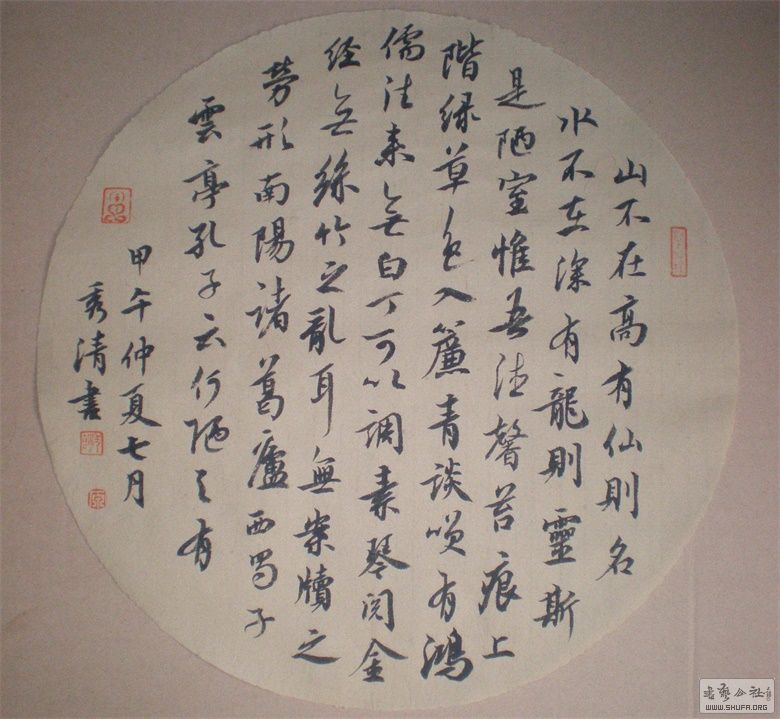 山不在高有仙則名
水不在深有龍則靈斯
是陋室惟吾德馨苔痕上
階绿草色入簾青談咲有鴻
儒往来无白丁可以調素琴閲金
经无絲竹之亂耳無案牘之
劳形南陽諸葛廬西蜀子
雲亭孔子云何陋之有
甲午仲夏七月
秀清書
WWW.SHUFA.ORG